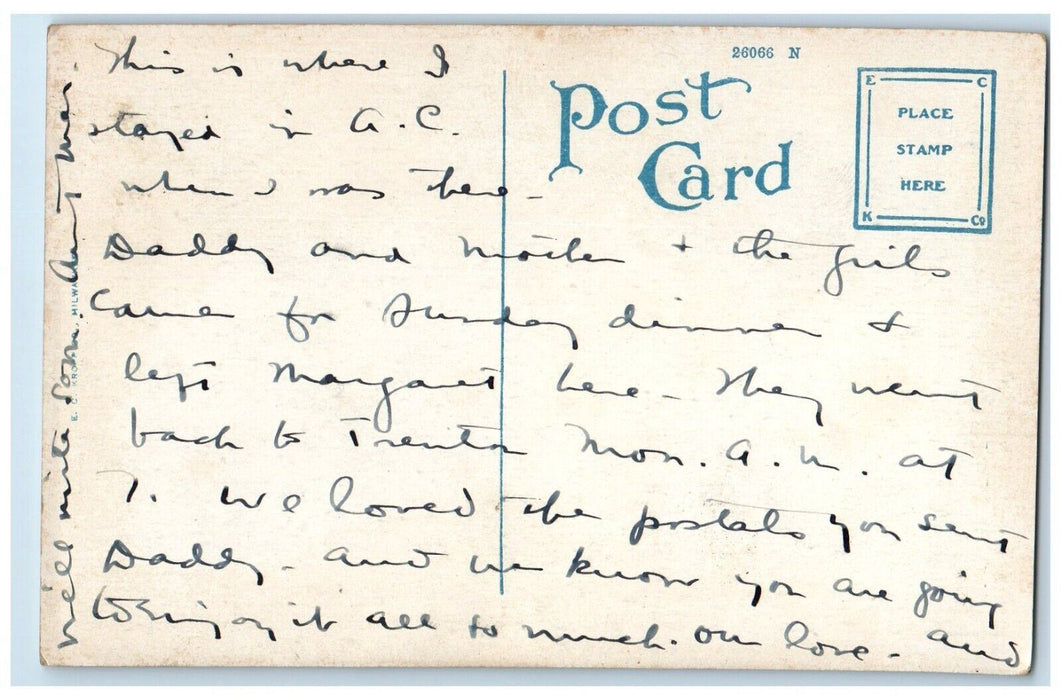 This is where I
stayed in A.C.
when I was there -
Daddy and Mother + the girls
came for Sunday dinner &
left Margaret here - They went
back to Trenton Mon. A.M. at
7. We loved the postals you sent
Daddy - and we know you are going
to enjoy it all so much. Our love - and
will write soon. Aunt Mar.
26066 N
Post
Card
E C
PLACE
STAMP
HERE
K Co
E. C. KRO MILWA